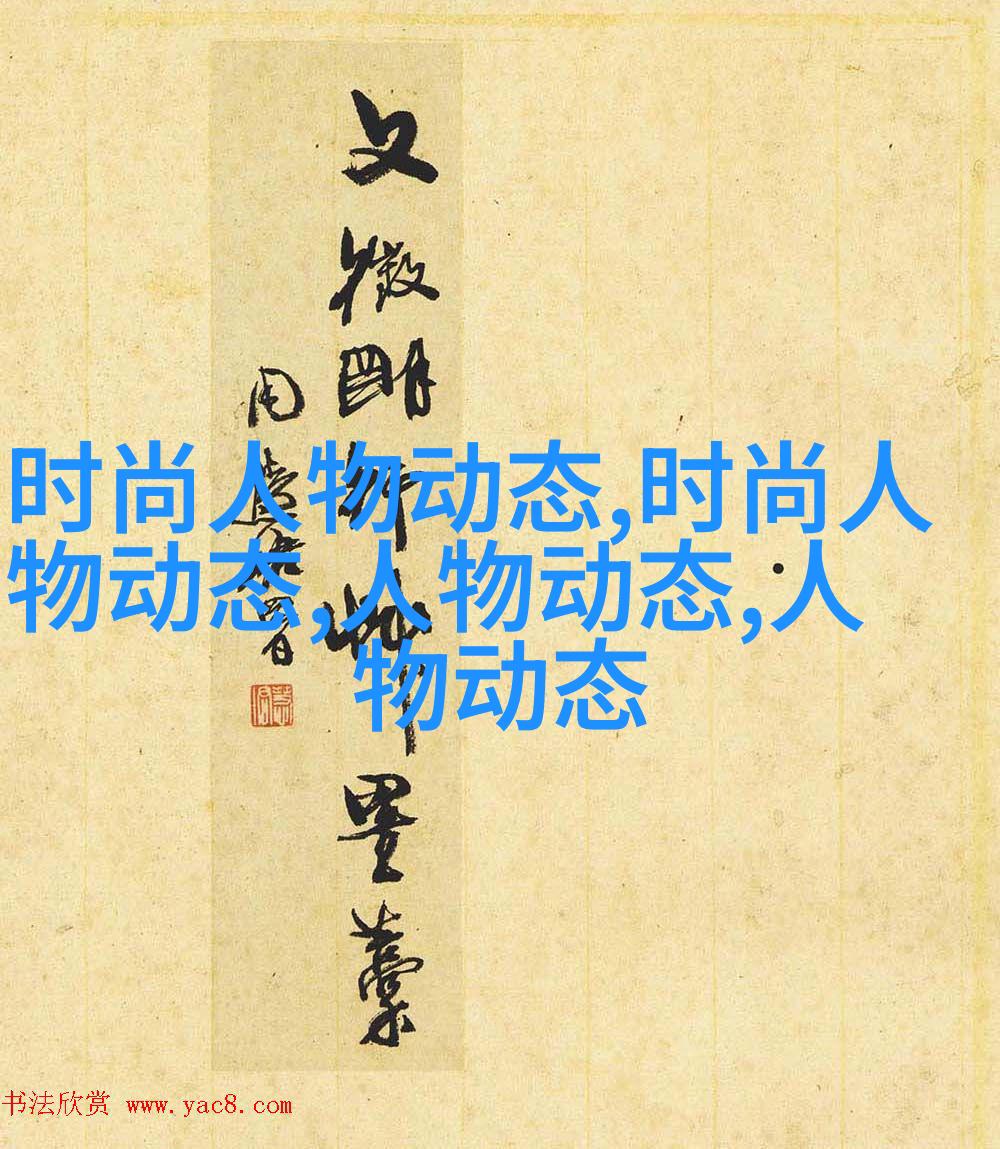 文徵明
墨藁
时尚人物动态,时尚人
物动态,人物动态,人
物动态
书法欣赏 www.yac8.com